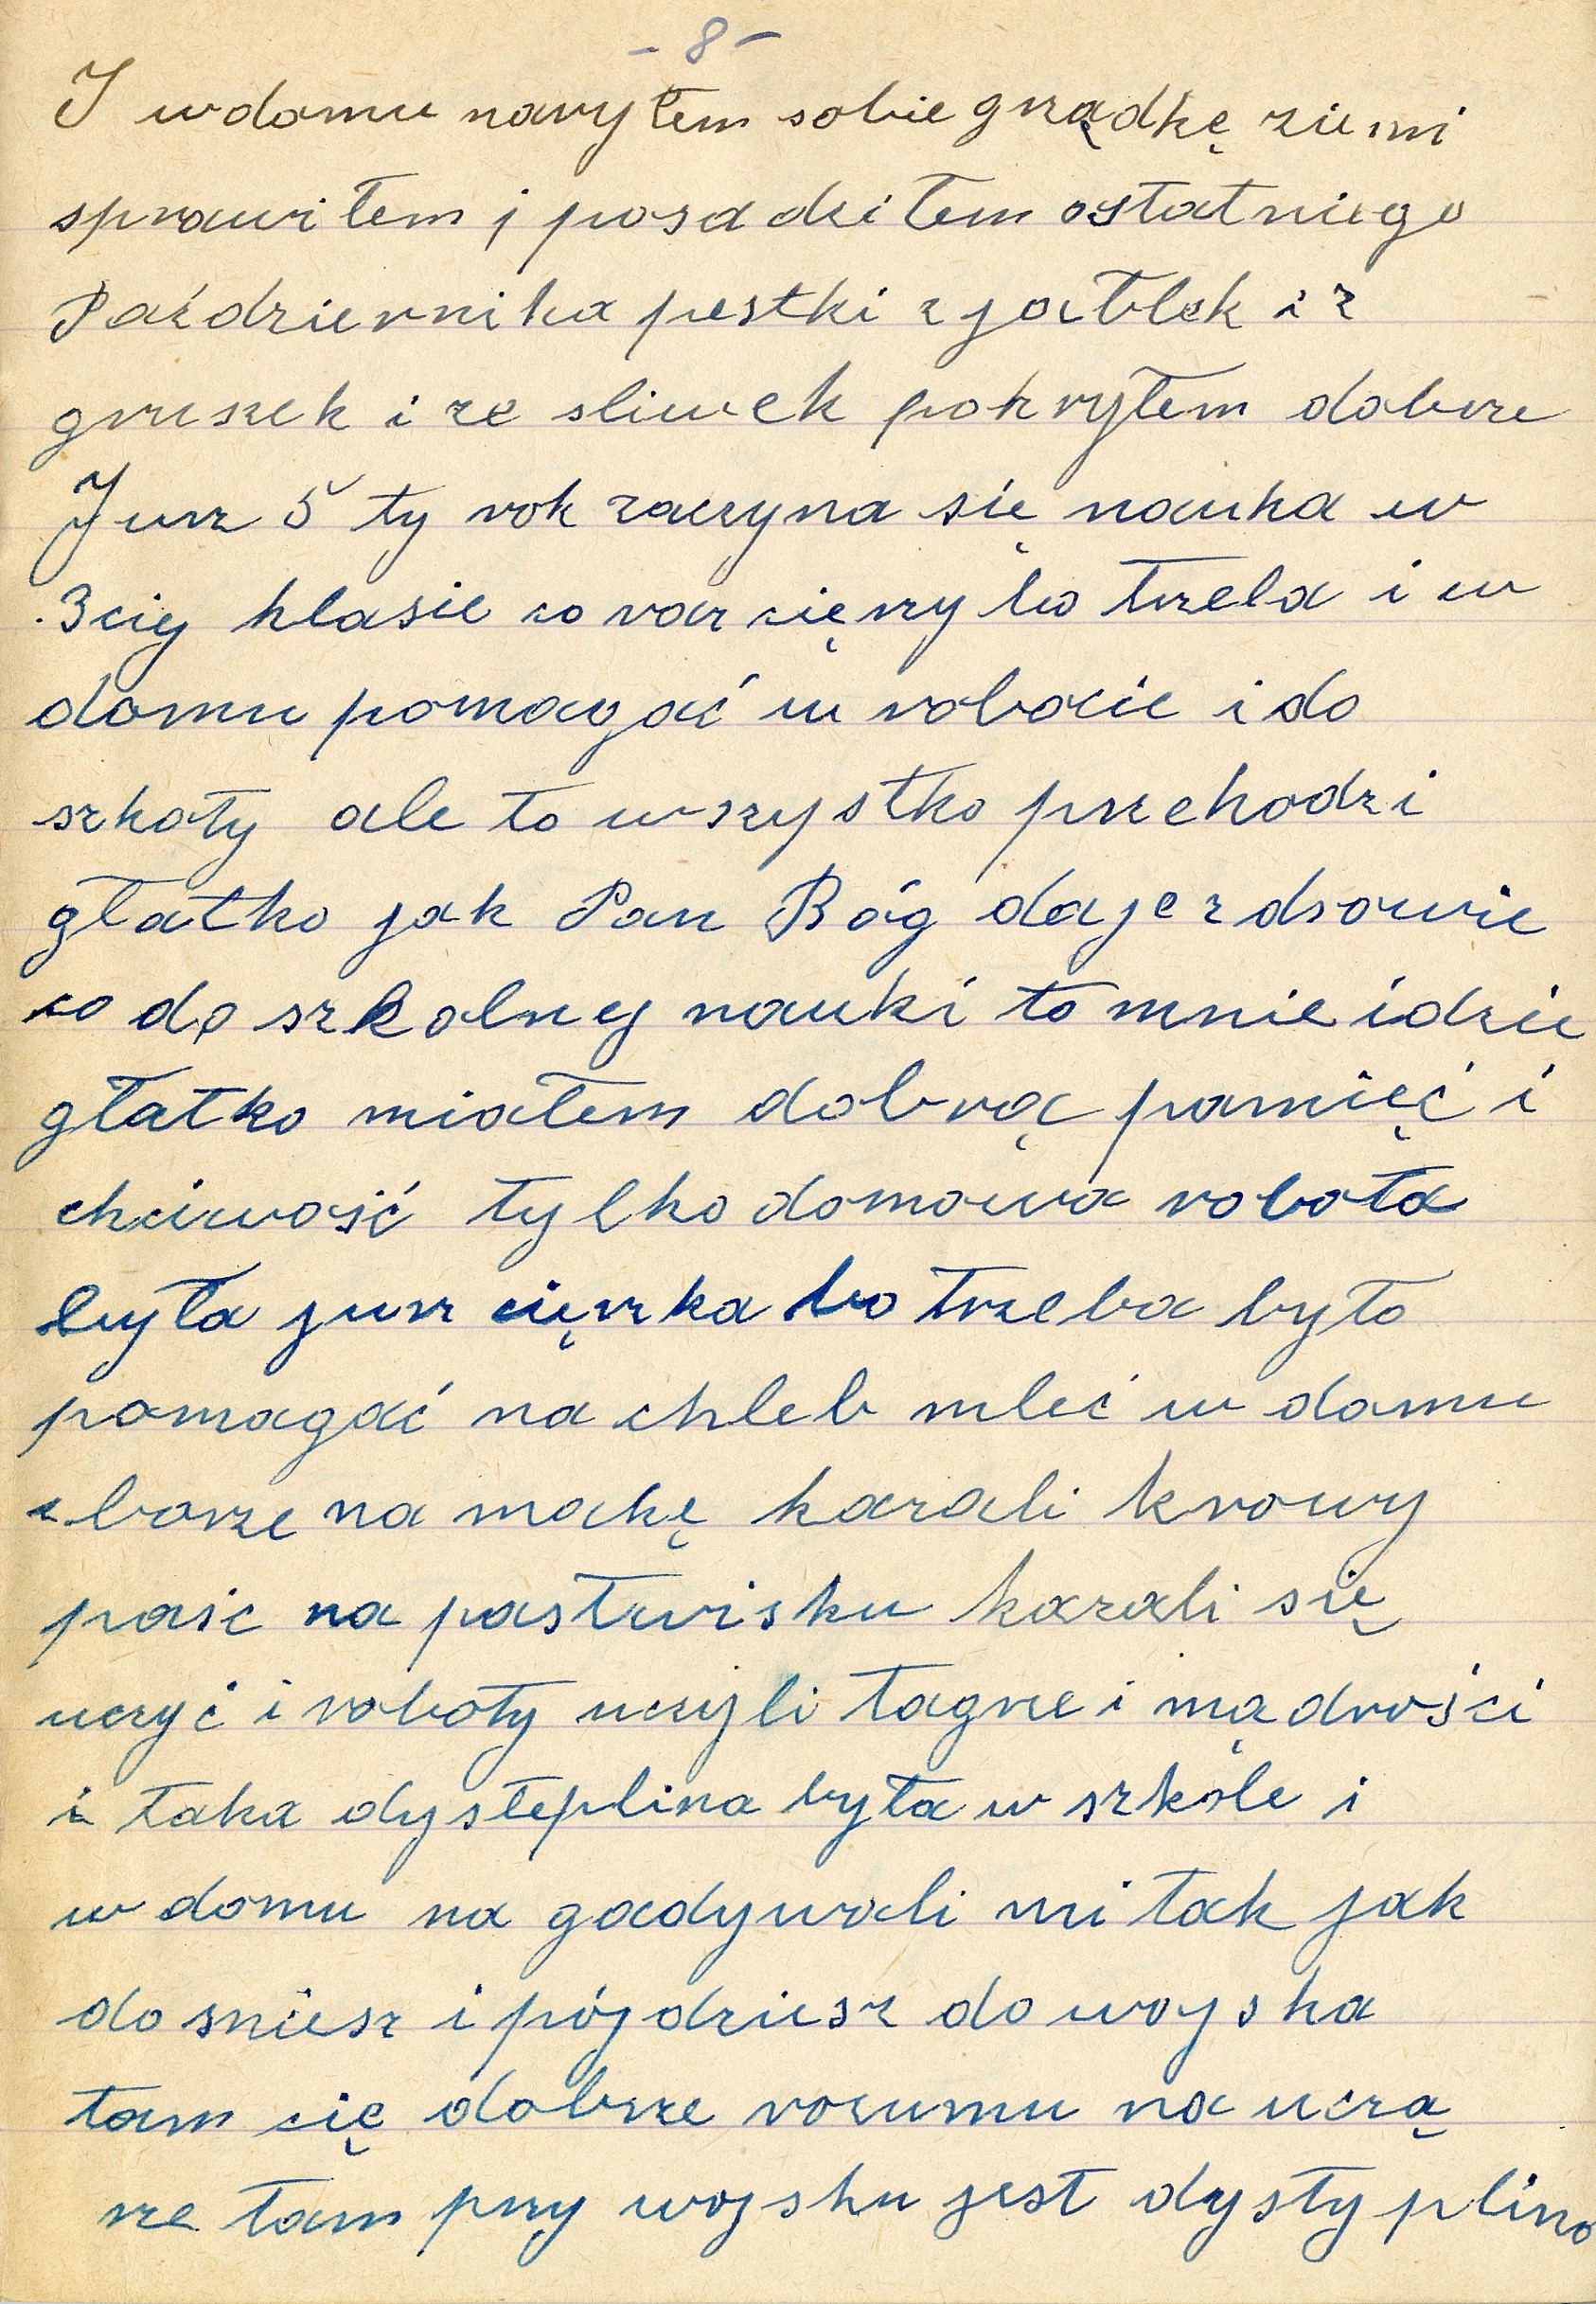 - 8 -
I wdomu naryłem sobie grządkę ziemi
sprawiłem i posadziłem ostatniego
Października pestki z jabłek i z
gruszek i ze sliwek pokryłem dobrze
Jurz 5 ty rok zaczyna się nauka w
3 ciej klasie co raz cięrzy bo trzeba i w
domu pomagać w robocie i do
szkoły ale to wszystko przehodzi
głatko jak Pan Bóg daje zdrowie
co do szkolnej nauki to mnie idzie
głatko miałem dobrą pamięć i
chciwość tylko domowa robota
była jurz cięrzka bo trzeba było
pomagać na chleb mleć w domu
zborze na mąkę kazali krowy
paść na pastwisku kazali się
uczyć i roboty uczyli tagrze i mądrości
i taka dysteplina była w szkole i
w domu na gadywali mi tak jak
do sniesz i pójdziesz do wojska
tam cię dobrze rozumu na uczą
rze tam przy wojsku jest dystyplina